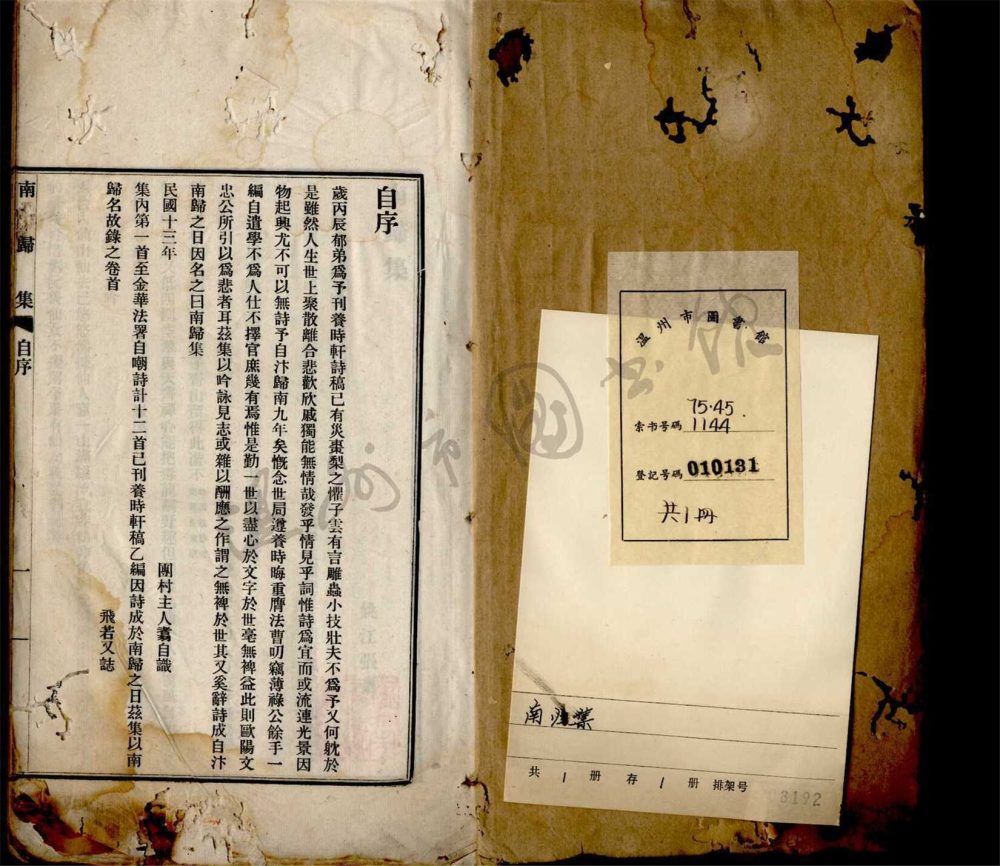 自序
歲丙辰郁弟爲予刊養時軒詩稿已有災棗梨之懼子雲有言雕蟲小技壯夫不爲予又何躭於
是雖然人生世上聚散離合悲歡欣戚獨能無情哉發乎情見乎詞惟詩爲宜而或流連光景因
物起興尤不可以無詩予自汴歸南九年矣慨念世局遵養時晦重膺法曹叨竊薄祿公餘手一
編自遣學不爲人仕不擇官庶幾有焉惟是勤一世以盡心於文字於世毫無裨益此則歐陽文
忠公所引以爲悲者耳茲集以吟詠見志或雜以酬應之作謂之無裨於世其又奚辭詩成自汴
南歸之日因名之曰南歸集
民國十三年 團村主人翥自識
集內第一首至金華法署自嘲詩計十二首已刊養時軒稿乙編因詩成於南歸之日茲集以南
歸名故錄之卷首 飛若又誌
南歸集 自序 一
溫州市圖書館
索书号碼 75·45
1144
登記号碼 010131
共1冊
溫州市圖书館
南归集
共 1 册 存 1 册 排架号
03192